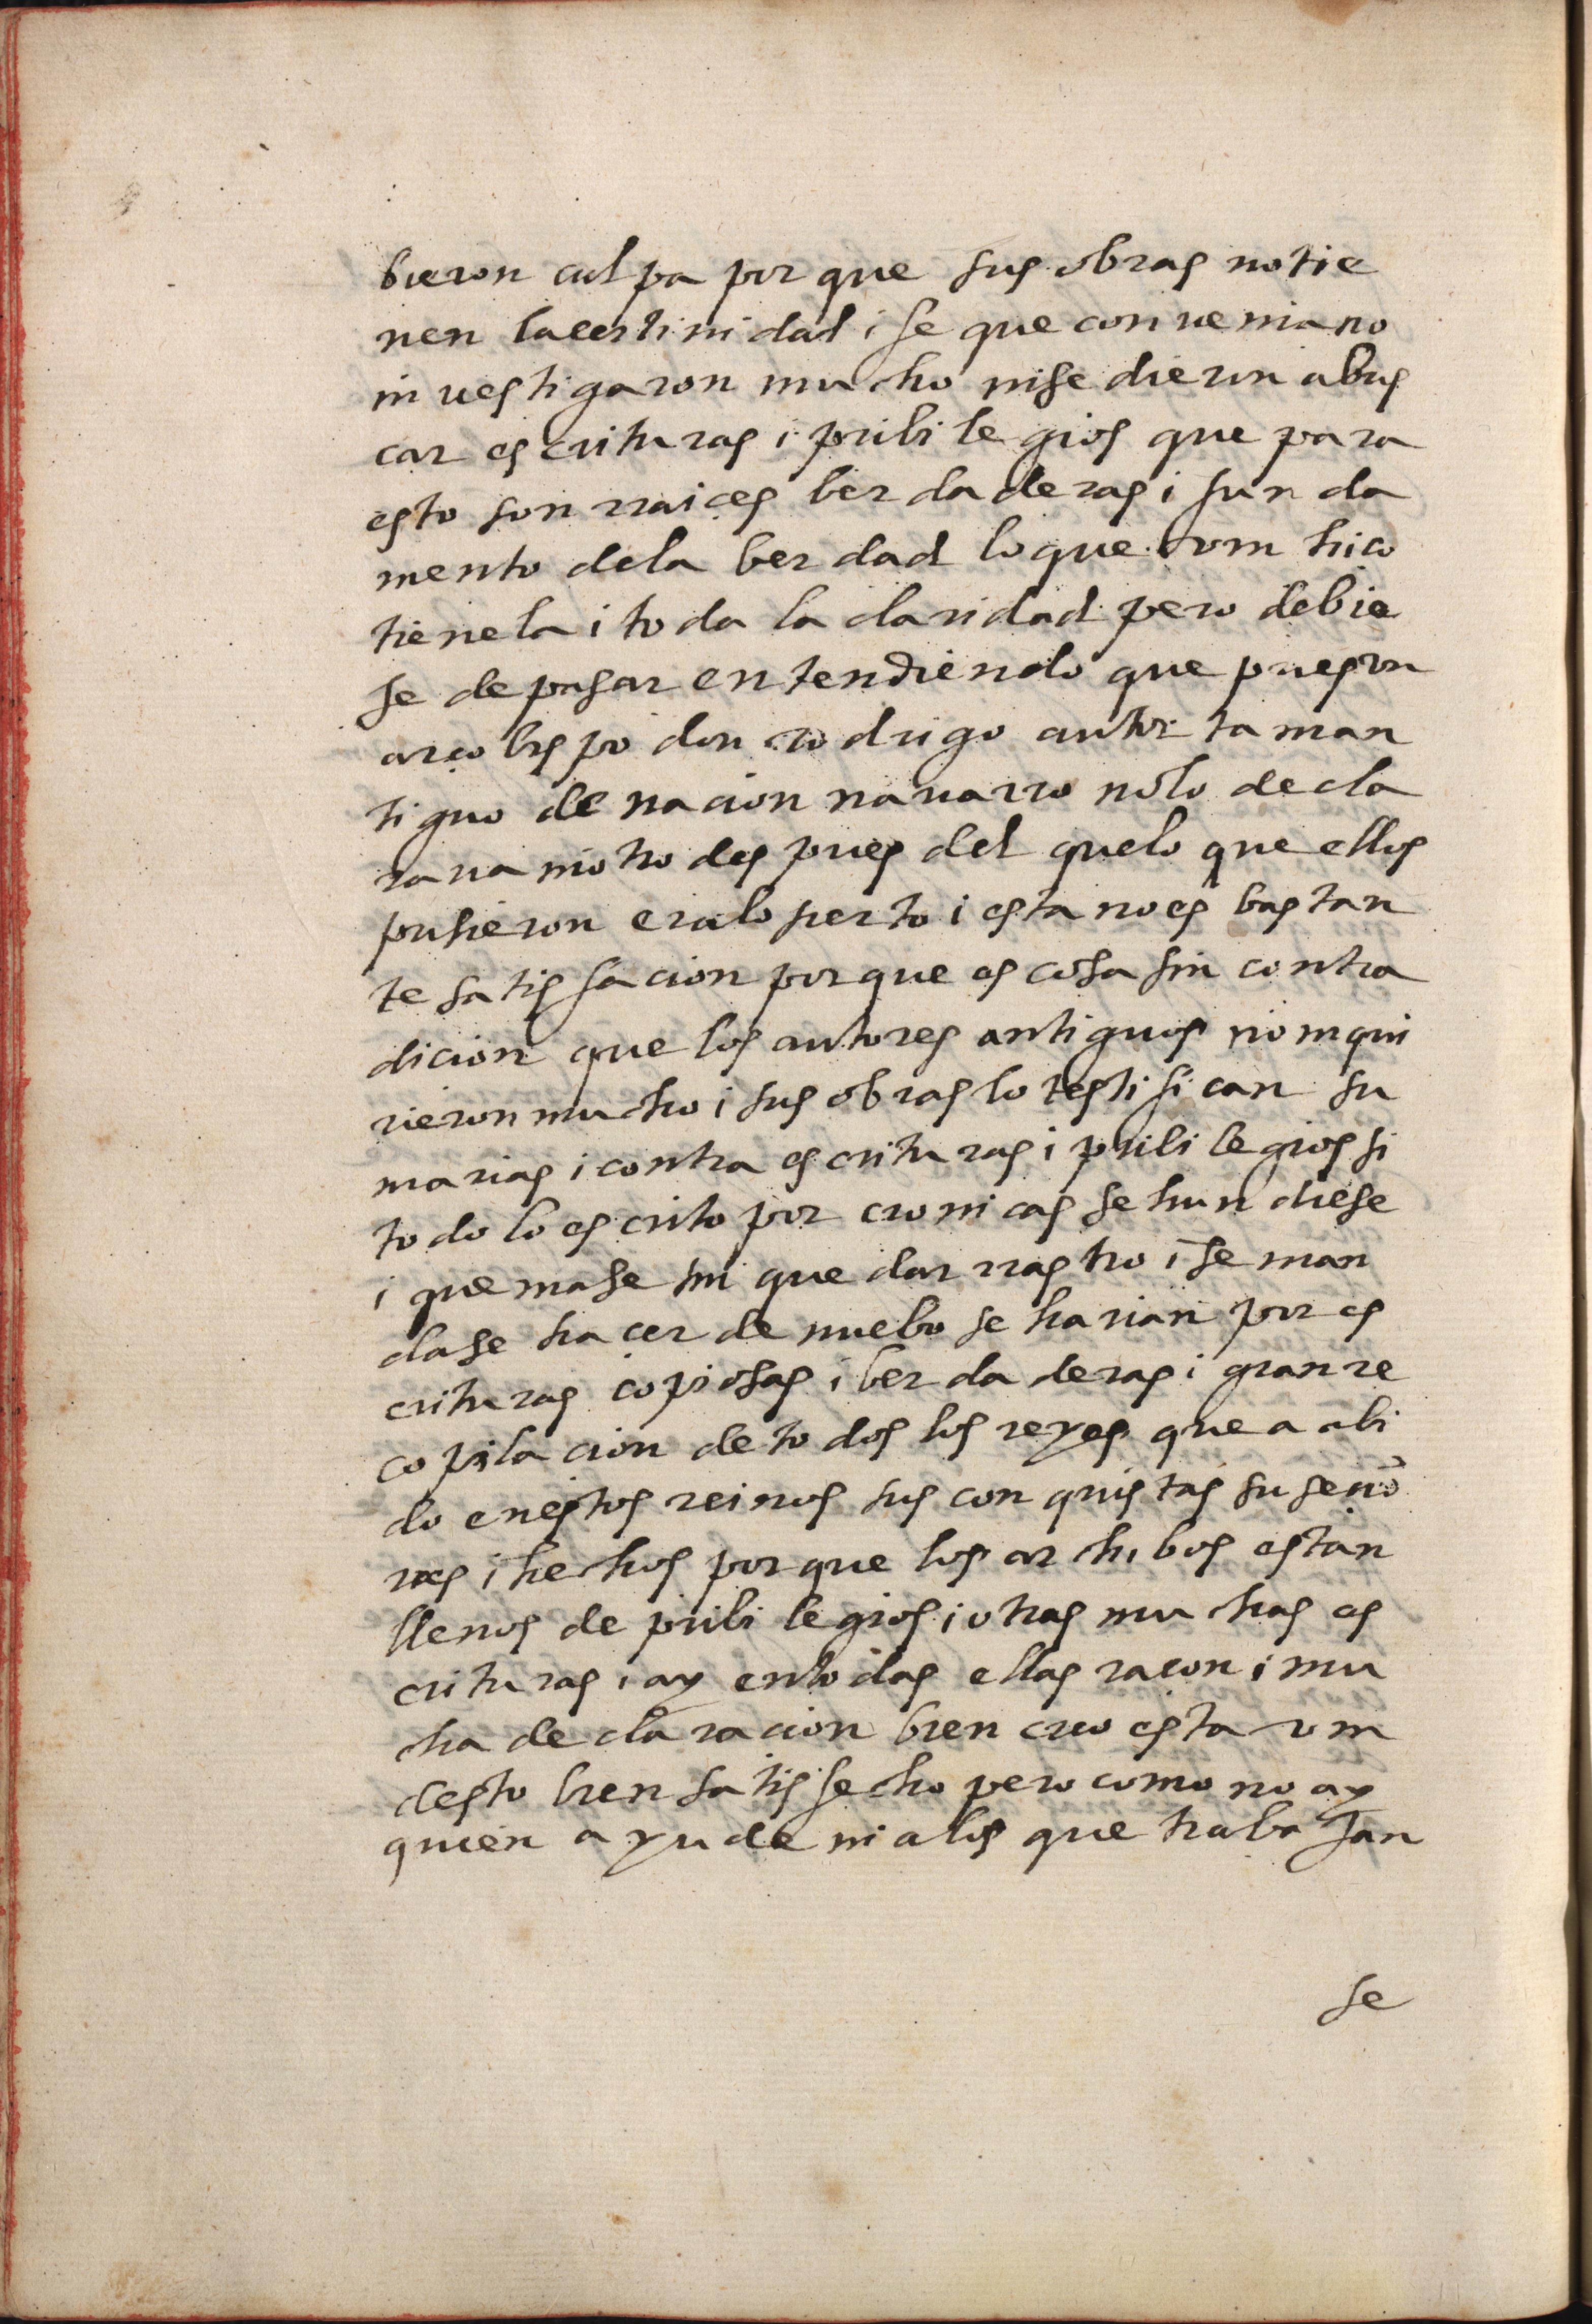 bieron culpa por que sus obras no tie
nen la certinidad i fe que convenia no
investigaron mucho ni se dieron a bus
car escrituras i pribilegios que para
esto son rraices berdaderas i funda
mento de la berdad lo que vm hiço
tienela i toda la claridad pero debie
se de pasar entendiendo que pues vn
arçobispo don rodrigo autor tam an
tiguo de nacion navarro no lo decla
rava ni otro despues del que lo que ellos
pusieron era lo sierto i esta no es bastan
te satisfacion porque es cosa sin contra
dicion que los autores antiguos no inqui
rieron mucho i sus obras lo testifican su
marias i contra escrituras i pribilegios si
todo lo escrito por cronicas se hundiese
i quemase sin quedar rrastro i se man
dase haçer de nuebo se harian por es
crituras copiosas i berdaderas i gran re
copilacion de todos los reyes que a abi
do en estos reinos sus conquistas su seño
res i hechos porque los archibos estan
llenos de pribilegios i otras muchas es
crituras i ay en todas ellas raçon i mu
cha declaracion bien creo esta vm
desto bien satisfecho pero como no ay
quien ayude ni a los que trabajan
se